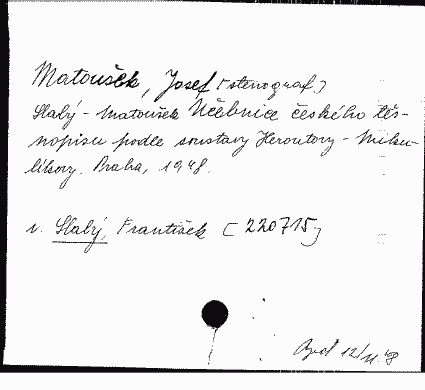 Matoušek, Josef (stenograf)
Slabý - Matoušek Učebnice českého těs-
nopisu podle soustavy Heroutovy - Miku-
líkovy. Praha, 1948.
v. Slabý, František [220715]
12/11.48